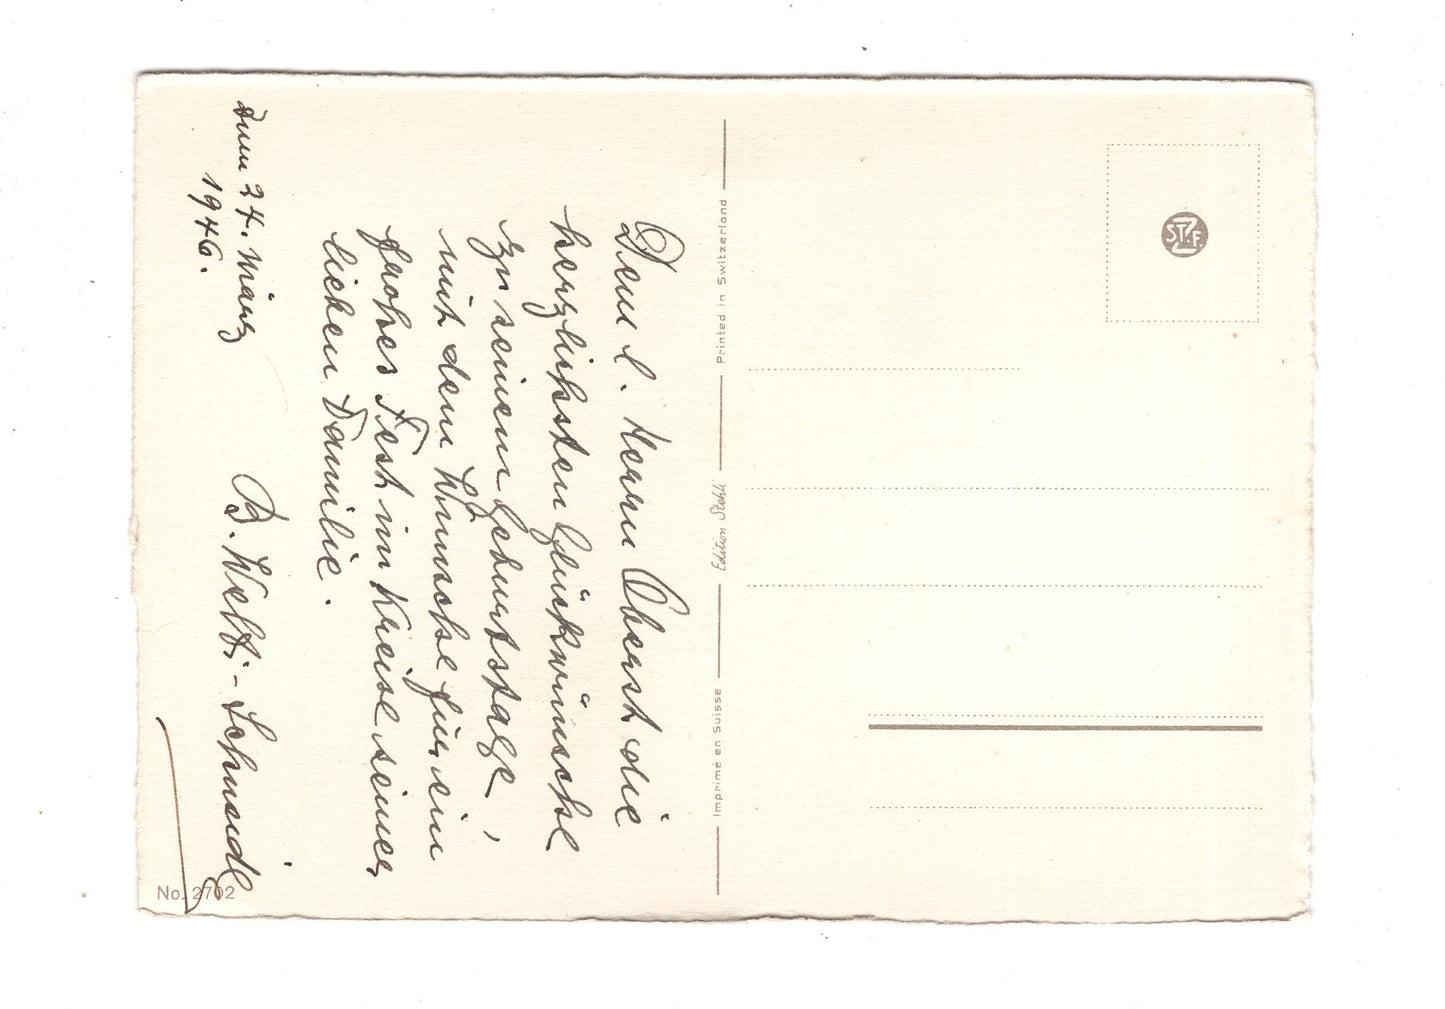 Dem l. Herrn Oberst die
herzlichsten Glückwünsche
zu seinem Geburtstage,
mit dem Wunsche für ein
frohes Fest im Kreise seiner
lieben Familie.
Zum 24. März
1946.
B. Welti-Schmidt
Imprimé en Suisse
Edition Stehli
Printed in Switzerland
No. 2702
STZF